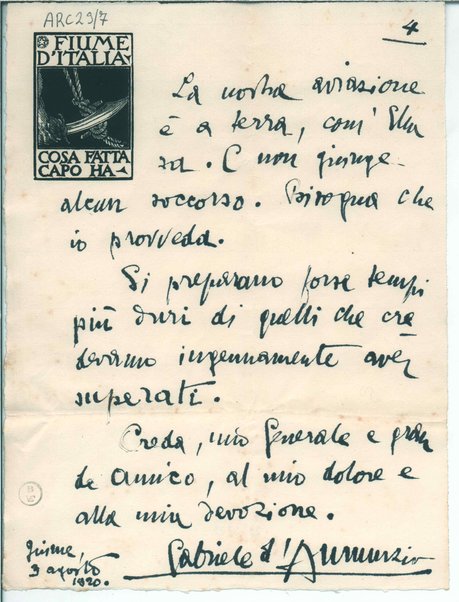 ARC29/7
4
FIUME
D'ITALIA
COSA FATTA
CAPO HA
La nostra aviazione
è a terra, com' Ella
sa. E non giunge
alcun soccorso. Bisogna che
io provveda.
Si preparano forse tempi
più duri di quelli che cre
devamo ingenuamente aver
superati.
Creda, mio Generale e gran
de amico, al mio dolore e
alla mia devozione.
Gabriele d'Annunzio
Fiume,
3 agosto
1920.